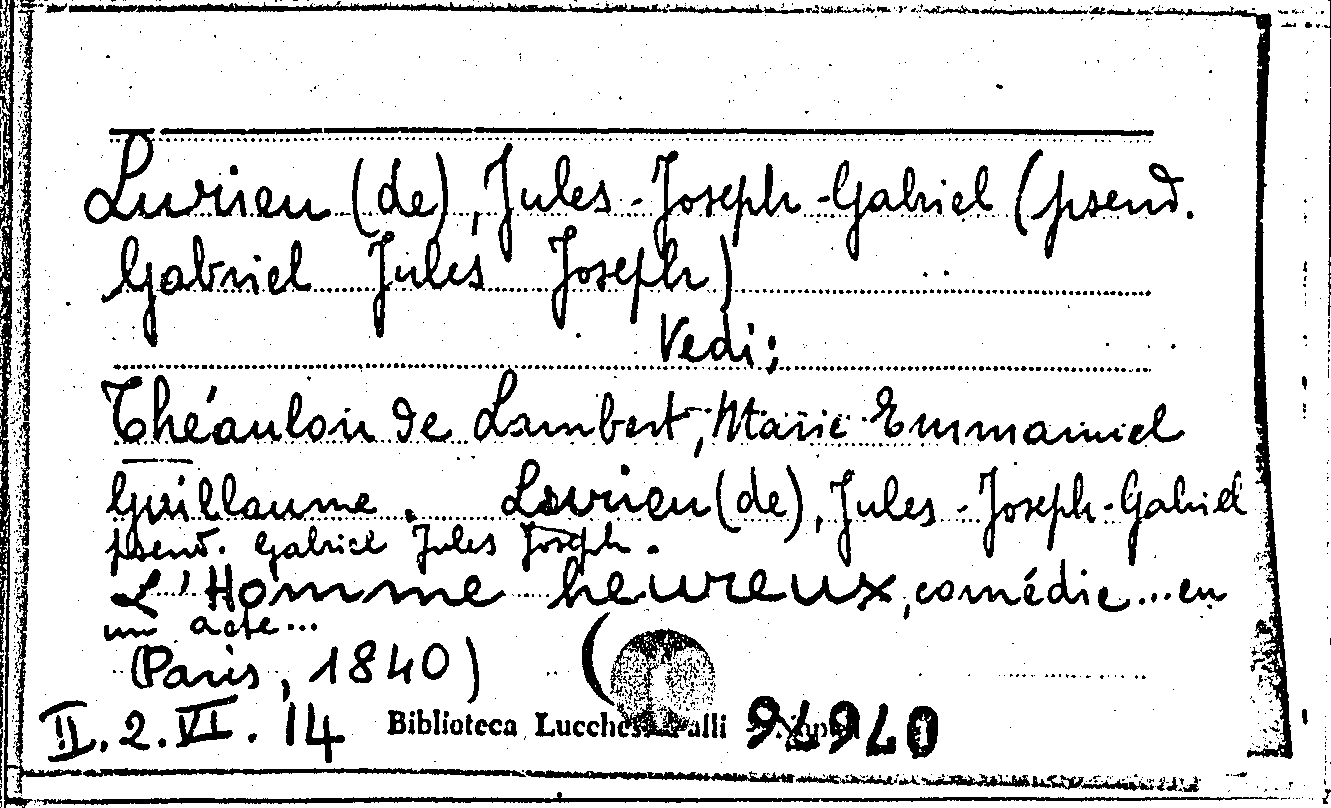 Lurieu (de), Jules-Joseph-Gabriel (pseud.
Gabriel Jules Joseph)
Vedi:
Théaulon de Lambert, Marie Emmanuel
Guillaume. Lurieu (de), Jules-Joseph-Gabriel
pseud. Gabriel Jules Joseph.
L'Homme heureux, comédie...en
un acte...
(Paris, 1840) (
II.2.VI.14 Biblioteca Lucchesi Palli